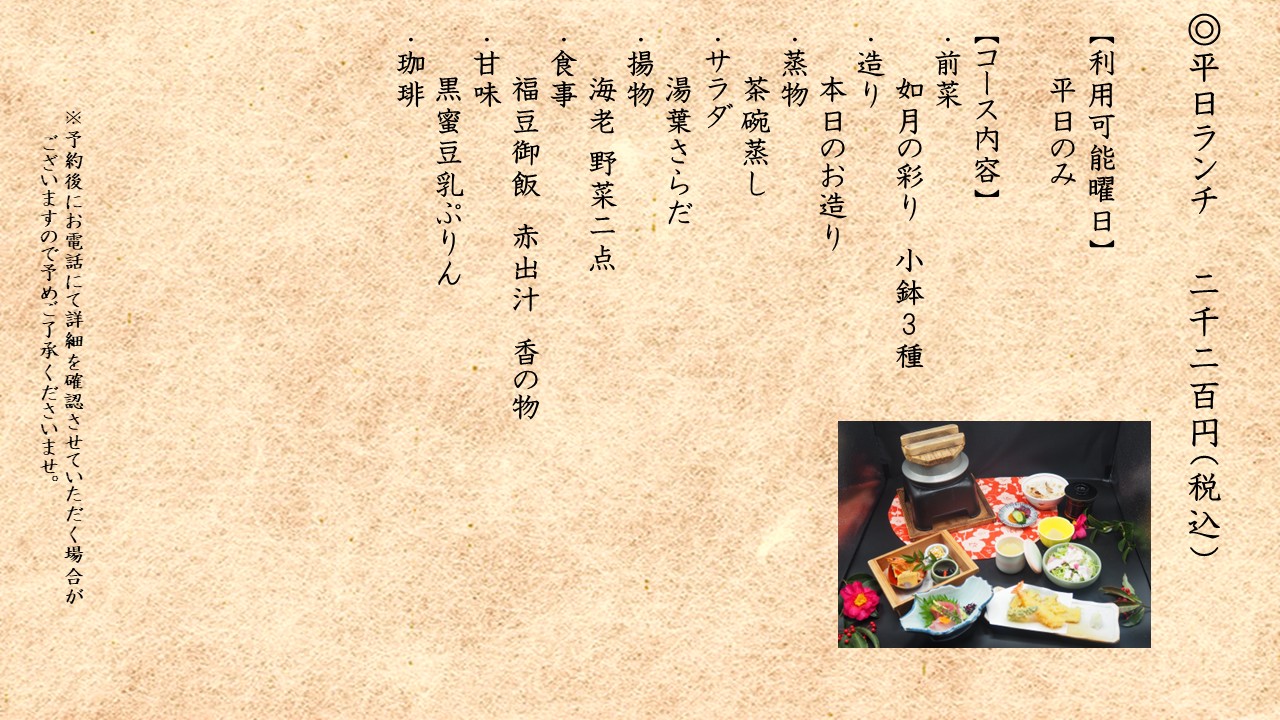 ◎平日ランチ　二千二百円(税込)
【利用可能曜日】
平日のみ
【コース内容】
・前菜
如月の彩り　小鉢３種
・造り
本日のお造り
・蒸物
茶碗蒸し
・サラダ
湯葉さらだ
・揚物
海老 野菜二点
・食事
福豆御飯　赤出汁　香の物
・甘味
黒蜜豆乳ぷりん
・珈琲
※予約後にお電話にて詳細を確認させていただく場合が
ございますので予めご了承くださいませ。